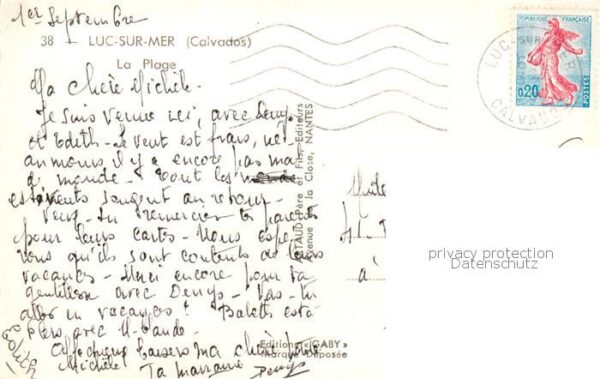 1er Septembre
38 - LUC-SUR-MER (Calvados)
La Plage
Ma chère Michèle.
Je suis venue ici, avec Denys
et Edith. Le vent est frais, né-
anmoins il y a encore pas ma
de monde. Dont les
estivants songent au retour.
Veux-tu remercier tes parents
pour leurs cartes. Nous espé
rons qu'ils sont contents de leurs
vacances. Merci encore pour ta
gentillesse avec Denys. Vas-tu
aller en vacances?
plers avec
Affectueux baisers ma chère
Michèle!
Ta marraine
Denys
Edith
ARTAUD Père et Fils, Editeurs
Avenue de la Close, NANTES
Editions "GABY"
Marque Déposée
REPUBLIQUE FRANÇAISE
0,20
POSTES
LUC-SUR-MER
CALVADOS
à
privacy protection
Datenschutz